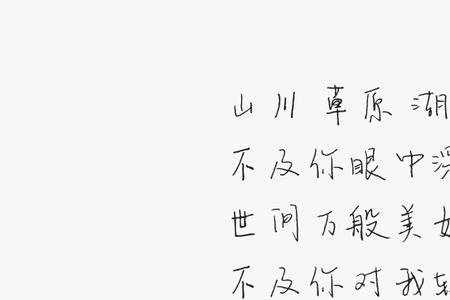 山川草原湖
不及你眼中
世间万般美
不及你对我